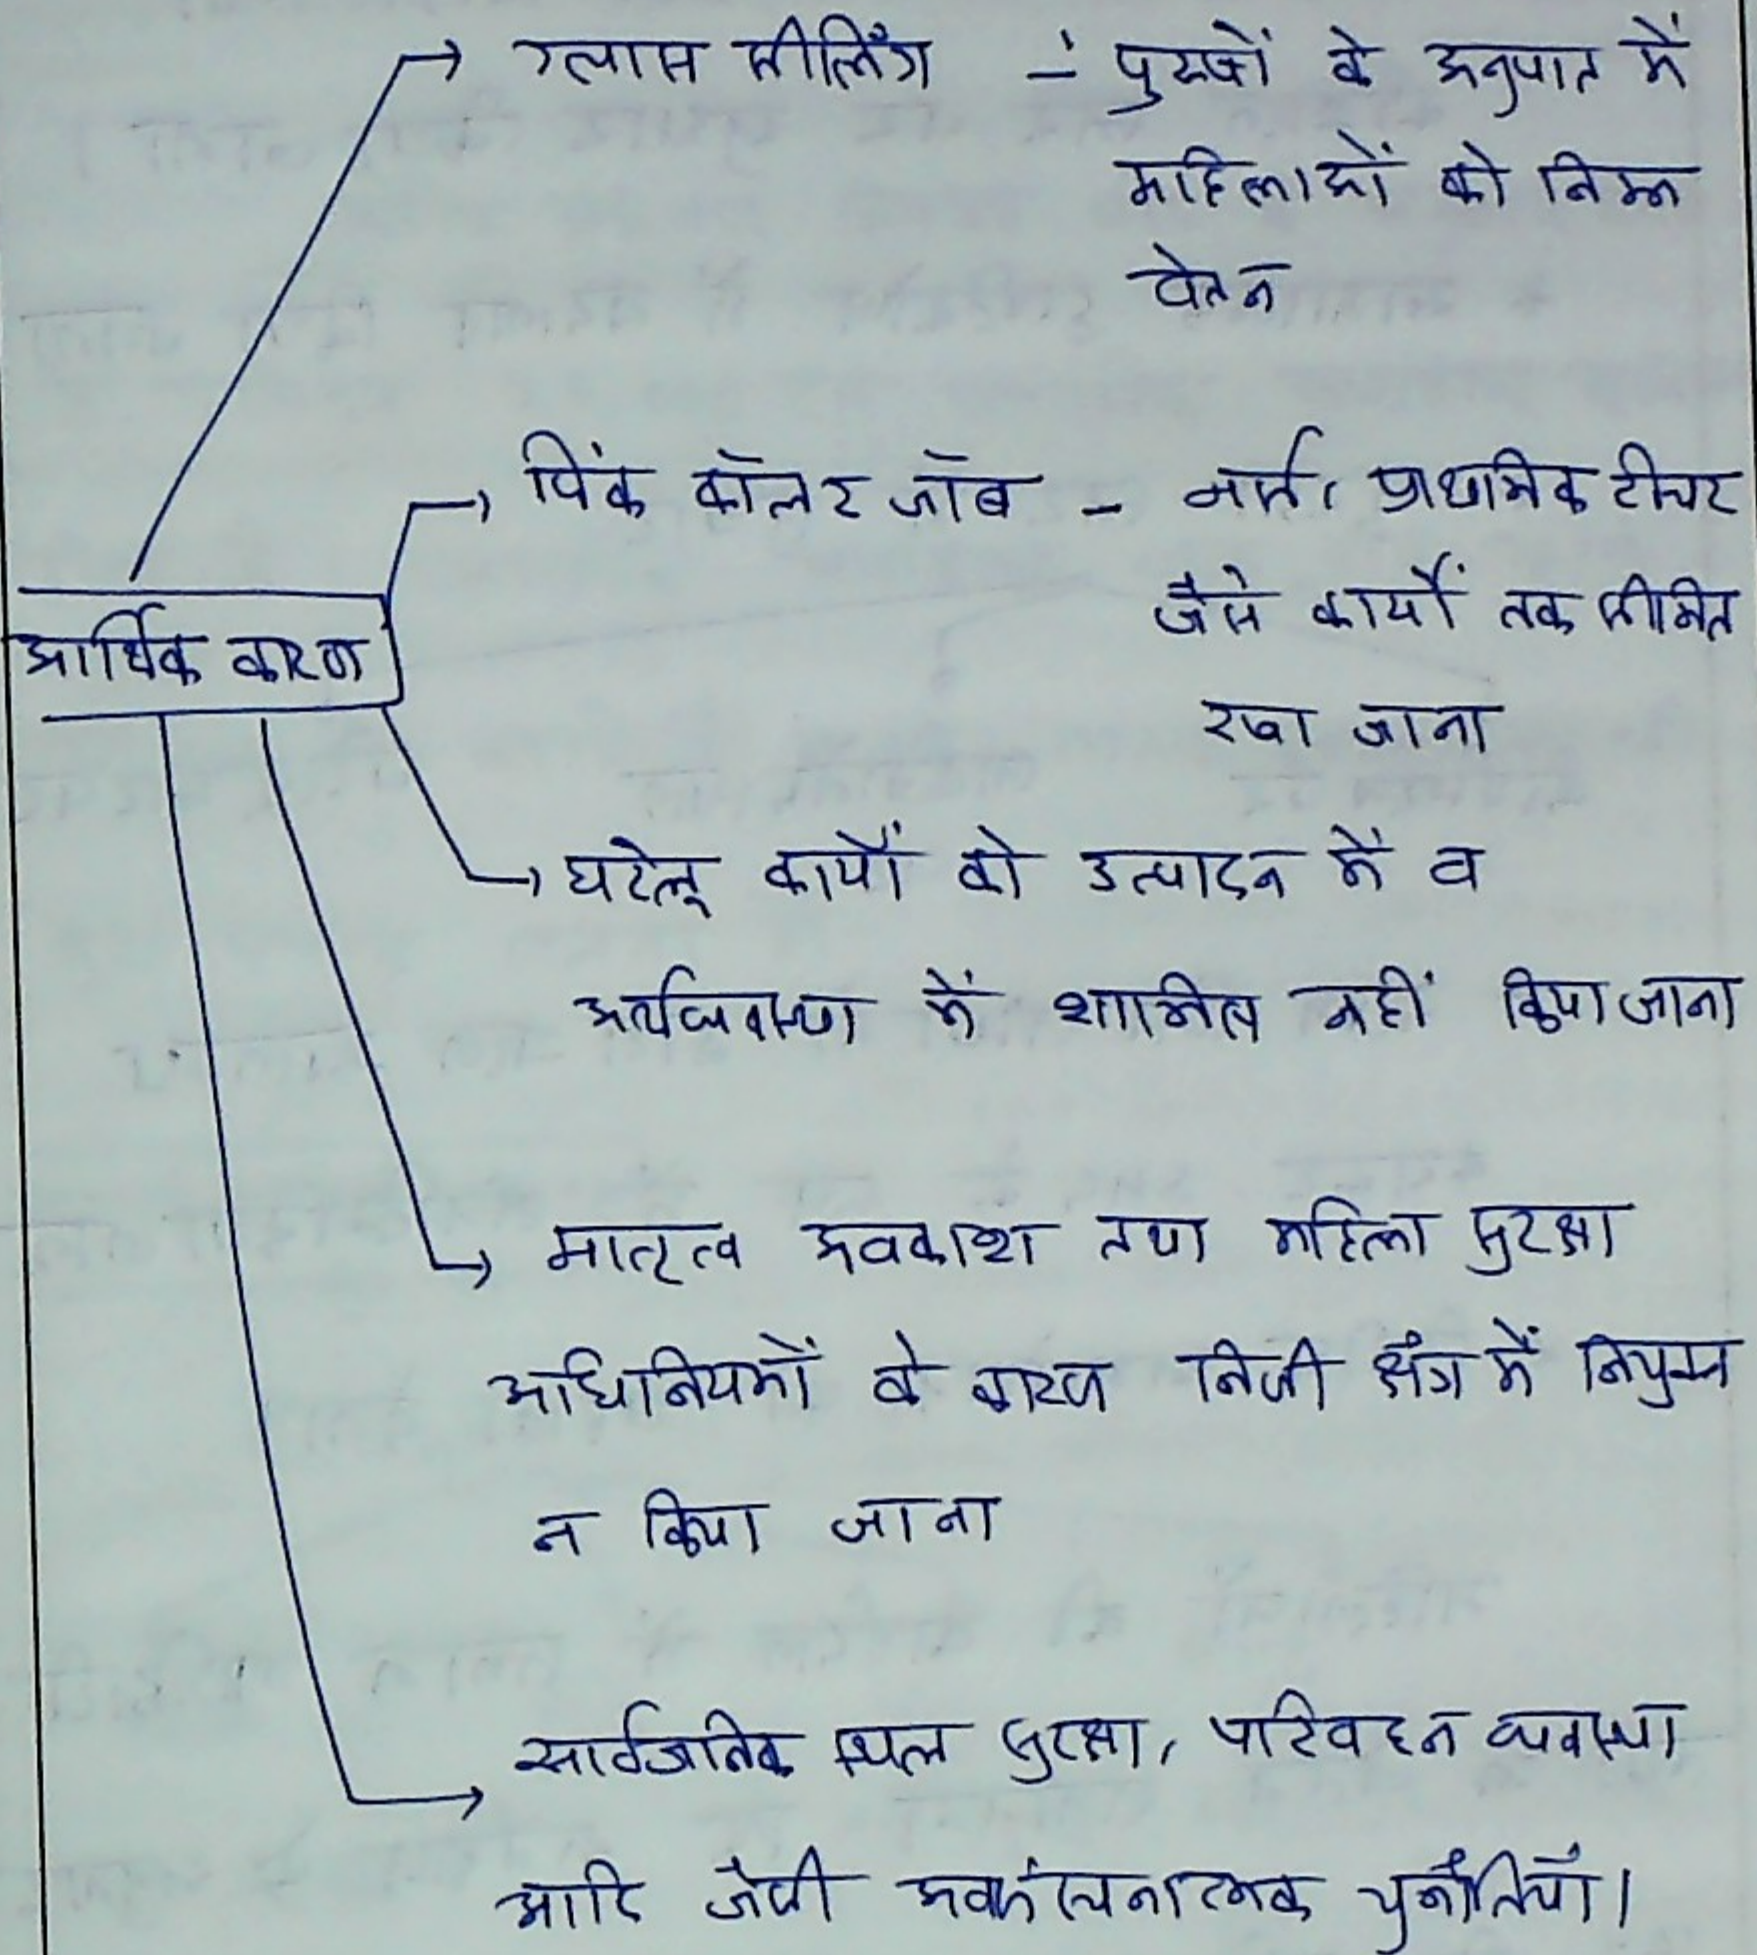 ग्लास सीलिंग - पुरुषों के अनुपात में
महिलाओं को निम्न
वेतन
पिंक कॉलर जॉब - नर्स, प्राथमिक टीचर
जैसे कार्यों तक सीमित
रखा जाना
आर्थिक कारण
घरेलू कार्यों को उत्पादन में व
अर्थव्यवस्था में शामिल नहीं किया जाना
मातृत्व अवकाश तथा महिला सुरक्षा
अधिनियमों के कारण निजी क्षेत्र में नियुक्त
न किया जाना
सार्वजनिक स्थल सुरक्षा, परिवहन व्यवस्था
आदि जैसी अवसंरचनात्मक चुनौतियाँ।